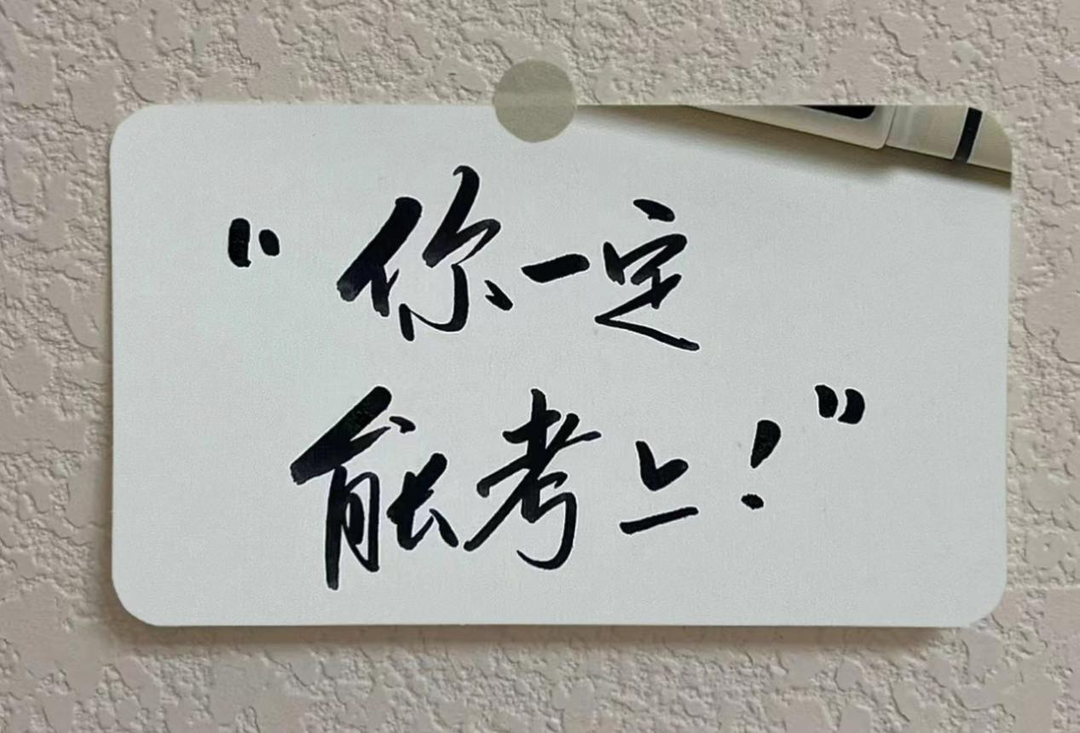 “你一定
能考上！”